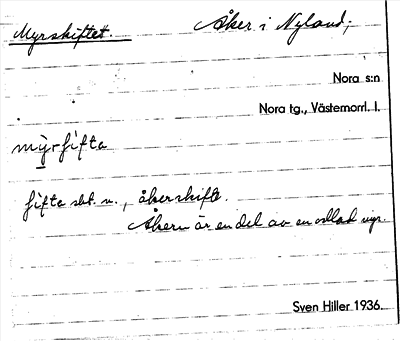 Myrskiftet. Åker i Nyland,
Nora s:n
Nora tg., Västernorrl. l.
mýrʃifta
ʃifta sbt. n., åkerskifte.
Åkern är en del av en odlad myr.
Sven Hiller 1936.